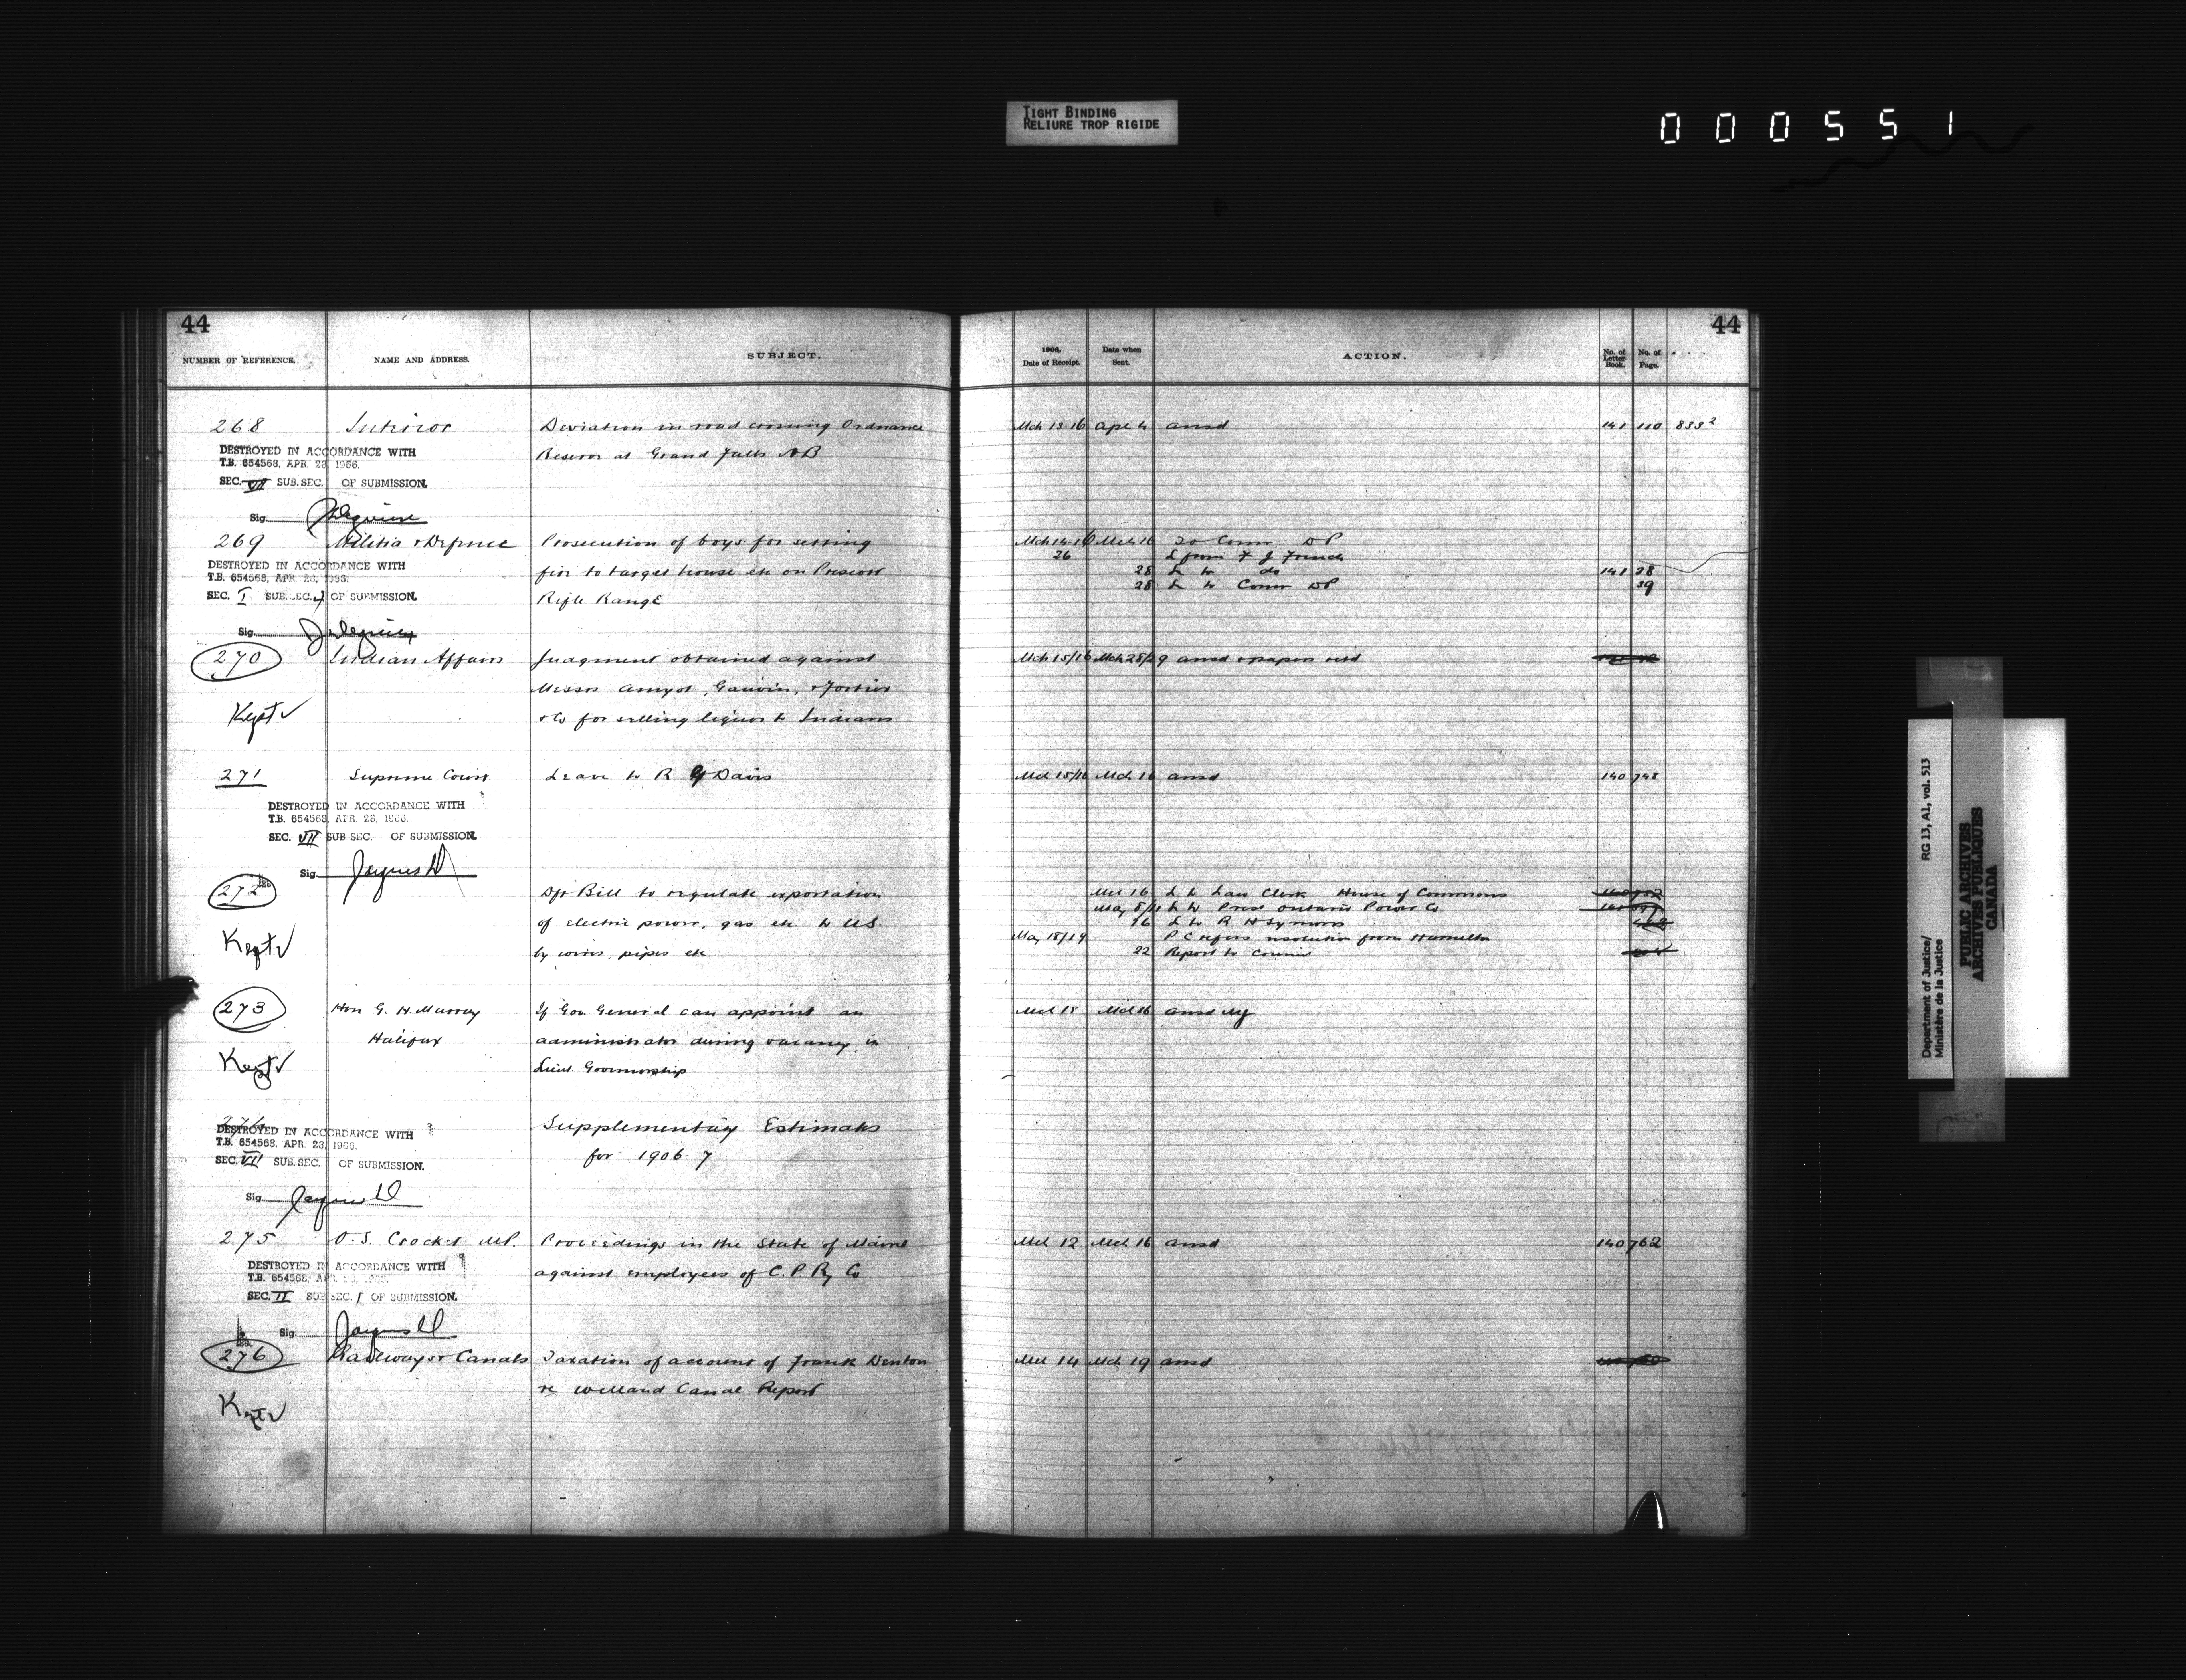 TIGHT BINDING
RELIURE TROP RIGIDE
000551
44
NUMBER OF REFERENCE. NAME AND ADDRESS. SUBJECT.
268 Interior Deviation in road crossing Ordnance
DESTROYED IN ACCORDANCE WITH
T.B. 654568, APR. 28, 1966.
Reserve at Grand Falls NB
SEC. VII SUB.SEC. OF SUBMISSION.
Sig.
269 Militia & Defence Prosecution of boys for setting
DESTROYED IN ACCORDANCE WITH
T.B. 654568, APR. 28, 1966.
fire to target house etc on Prescott
SEC. I SUB.SEC. OF SUBMISSION.
Rifle Range
Sig.
270 Indian Affairs Judgment obtained against
Messrs Amyot, Gauvin, & Fortier
Kept
& Co for selling liquor to Indians
271 Supreme Court Leave to R G Davis
DESTROYED IN ACCORDANCE WITH
T.B. 654568, APR. 28, 1966.
SEC. VII SUB.SEC. OF SUBMISSION.
Sig.
272 Dft Bill to regulate exportation
of electric power, gas etc to US.
Kept
by wires, pipes etc
273 Hon G. H. Murray If Gov General can appoint an
Halifax administrator during vacancy in
Kept
Lieut. Governorship
274 Supplementary Estimates
DESTROYED IN ACCORDANCE WITH
T.B. 654568, APR. 28, 1966.
for 1906-7
SEC. VII SUB.SEC. OF SUBMISSION.
Sig.
275 O. S. Crocket MP. Proceedings in the State of Maine
DESTROYED IN ACCORDANCE WITH
T.B. 654568, APR. 28, 1966.
against employees of C. P. Ry Co
SEC. II SUB.SEC. 1 OF SUBMISSION.
Sig.
276 Railways & Canals Taxation of account of Frank Denton
re Welland Canal Report
Kept
44
1906, Date of Receipt. Date when Sent. ACTION. No. of Letter Book. No. of Page.
Mch 13-16 Apl 4 ansd 141 110 833²
Mch 14-16 Mch 16 To Comr DP
26 L from F J French
28 L to do 141 38
28 L to Comr DP 39
Mch 15/16 Mch 28/29 ansd & papers retd
Mch 15/16 Mch 16 ansd 140 748
Mch 16 L to Law Clerk House of Commons
May L to Prest Ontario Power Co
16 L to R H Symons
May 18/19 P C refers resolution from Hamilton
22 Report to Council
Mch 15 Mch 16 ansd
Mch 12 Mch 16 ansd 140 762
Mch 14 Mch 19 ansd
Department of Justice/ RG 13, A1, vol. 513
Ministère de la Justice
PUBLIC ARCHIVES
ARCHIVES PUBLIQUES
CANADA